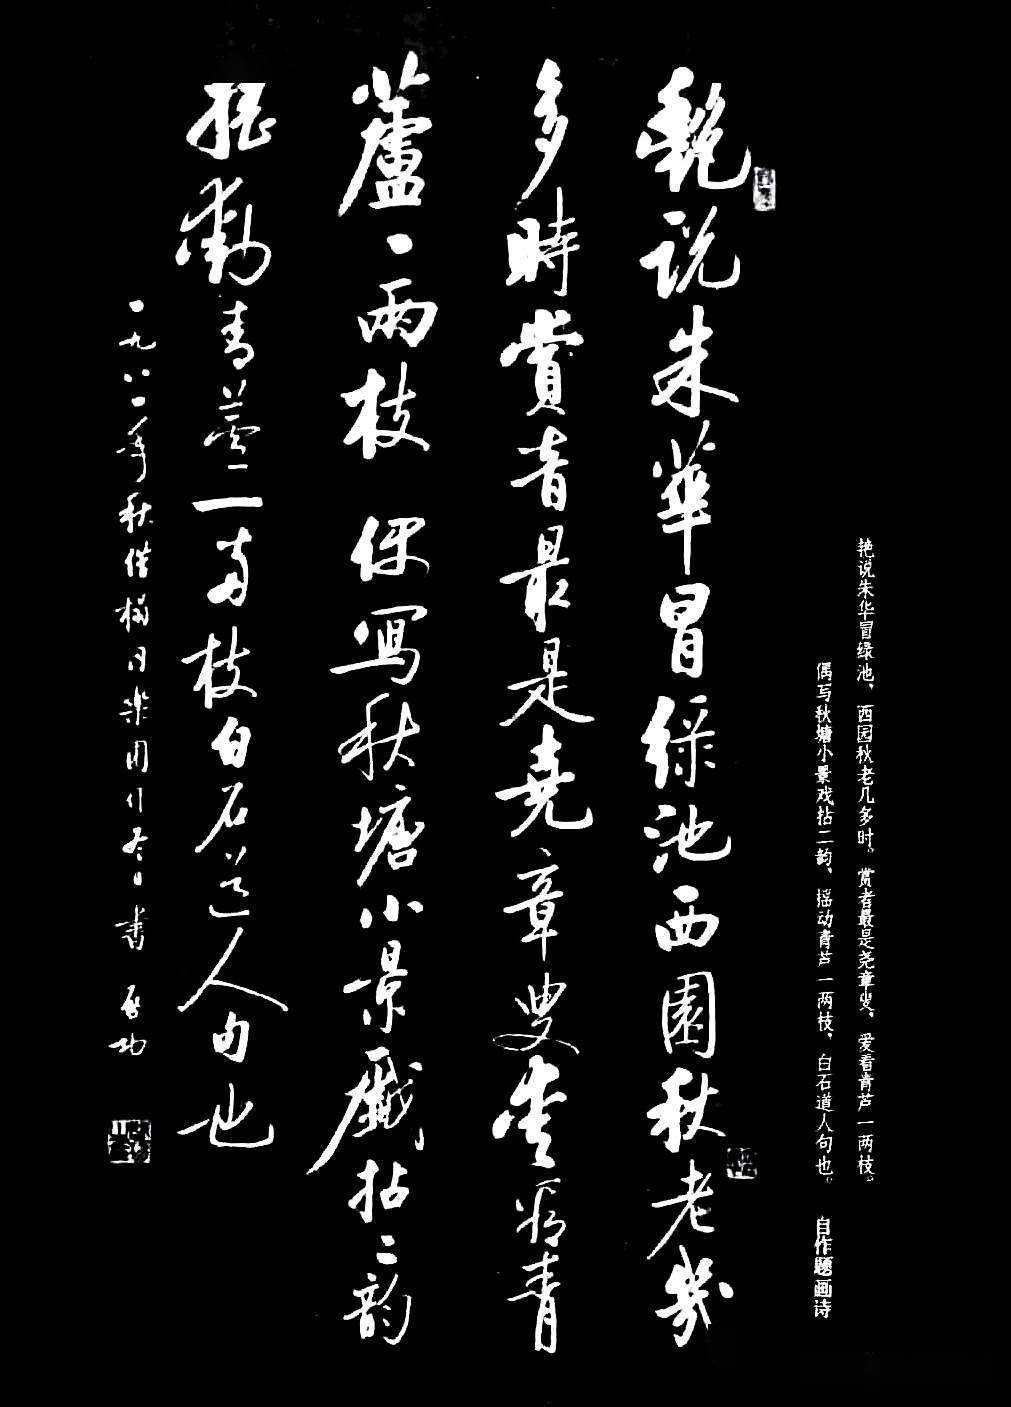 艳说朱华冒绿池，西园秋老几多时。赏者最是尧章叟，爱看青芦一两枝。
偶写秋塘小景戏拈二韵，摇动青芦一两枝，白石道人句也。　自作题画诗
艷说朱華冒绿池西園秋老幾
多時賞音最是堯章叟愛看青
蘆一兩枝　偶寫秋塘小景戲拈二韵
摇動青蘆一兩枝白石道人句也
一九八一年秋借榻同樂園行
書　啟功